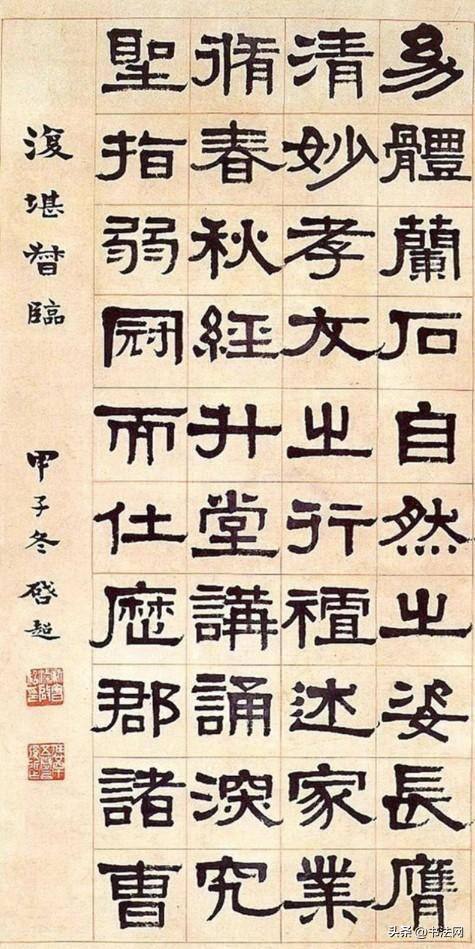 易體蘭石自然之姿長膺
清妙孝友之行襢述家業
脩春秋經升堂講誦深究
聖指弱冠而仕歷郡諸曹
復堪督臨 甲子冬 啓超
头条@书法网